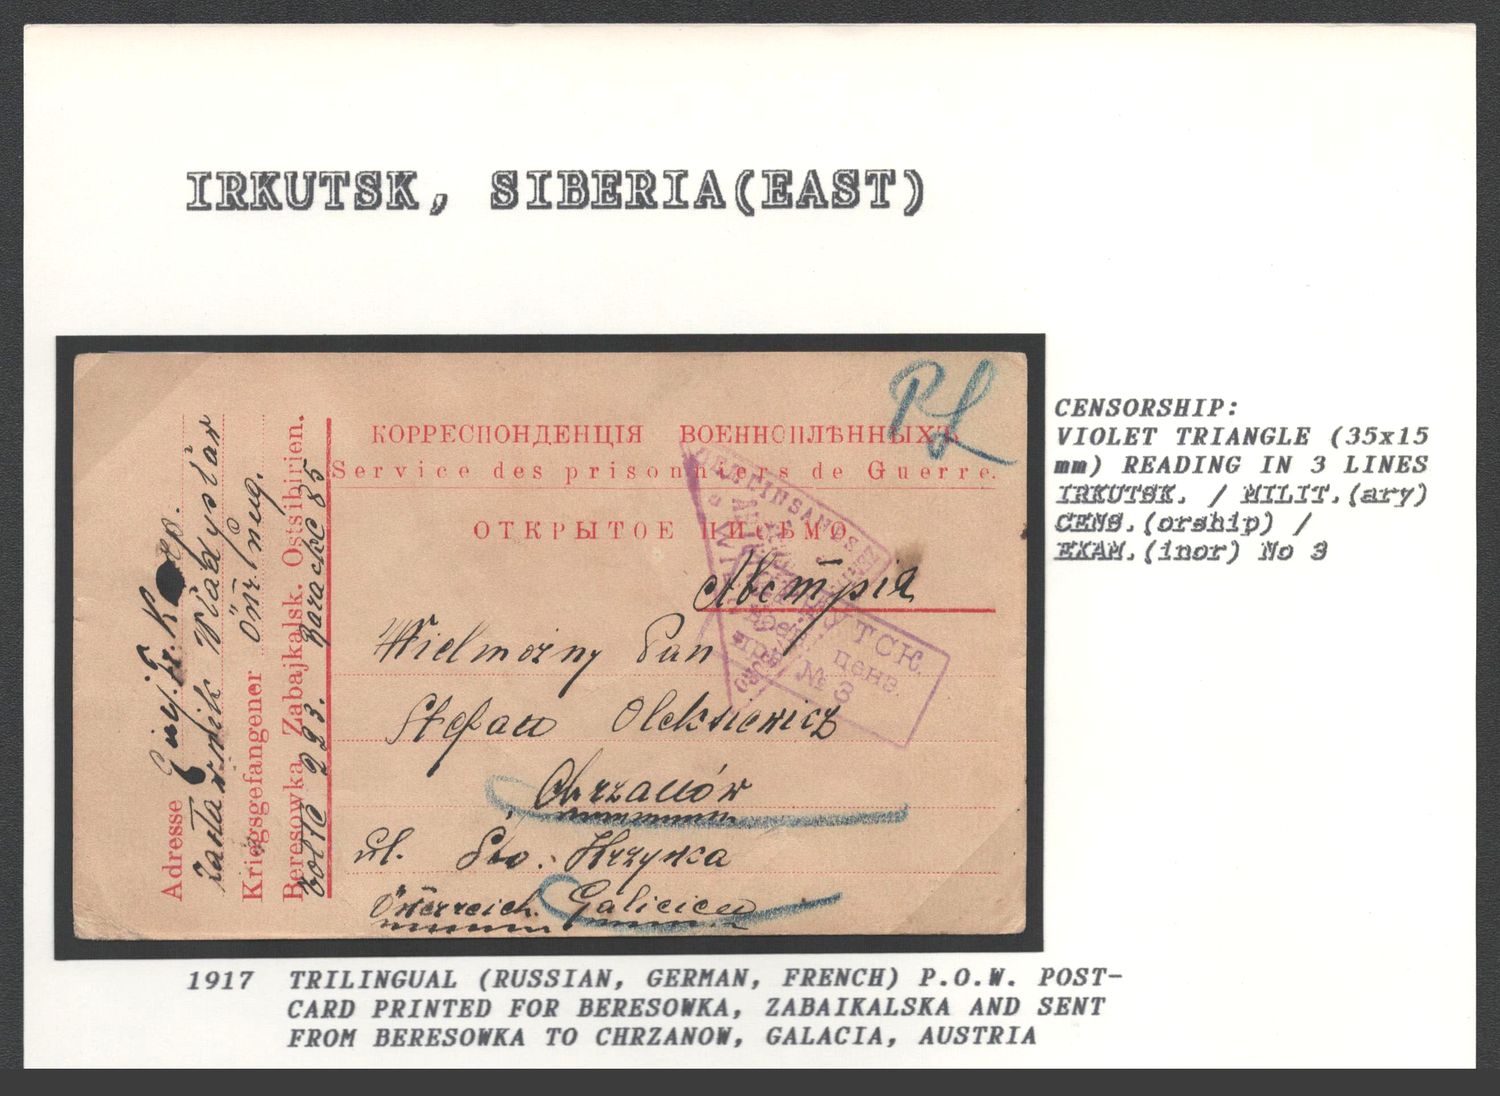 IRKUTSK, SIBERIA(EAST)
КОРРЕСПОНДЕНЦІЯ ВОЕННОПЛѢННЫХЪ
Service des prisonniers de Guerre.
ОТКРЫТОЕ ПИСЬМО
Австрія
Wielmożny Pan
Stefan Oleksiewicz
Chrzanów
ul. Św. Krzyża
Österreich. Galicien
Adresse Einj. Fr.
Władysław
Kriegsgefangener
Beresowka, Zabajkalsk. Ostsibirien.
293. Baracke 85
ИРКУТСК.
ценз.
№ 3
CENSORSHIP:
VIOLET TRIANGLE (35x15
mm) READING IN 3 LINES
IRKUTSK. / MILIT.(ary)
CENS.(orship) /
EXAM.(inor) No 3
1917 TRILINGUAL (RUSSIAN, GERMAN, FRENCH) P.O.W. POST-
CARD PRINTED FOR BERESOWKA, ZABAIKALSKA AND SENT
FROM BERESOWKA TO CHRZANOW, GALACIA, AUSTRIA